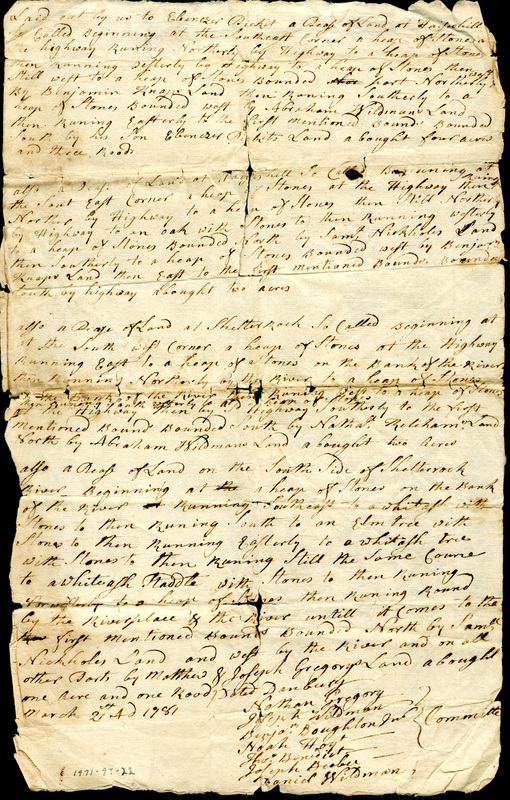 Laid out by us to Ebenezer Picket a Peas of Land at
So Called Beginning at the Southeast Corner a heap of Stones
the highway Runing Northerly by Highway to a heap of Stones
then Running Westerly by to a heap of Stones then
Still west to a heap of Stones Bounded Northerly
By Benjamin Knaps Land then Runing Southerly to a
heap of Stones Bounded west by Abraham Wildmans Land
then Runing Easterly to the first mentioned Bound Bounded
South by his Son Ebenezer Pickits Land abought four acres
and three Rood
also a Pease of Land at So Called Beginning at
the Sout East Corner a heap of Stones at the Highway then
Norther by Highway to a heap of Stones then Still Northerly
by Highway to an oak with Stones to then Running westerly
to a heap of Stones Bounded North by Samll Nickholes Land
then Southerly to a heap of Stones Bounded west by Benjam
Knaps Land then East to the first mentioned Bounds Bounded
South by highway abought two acres
also a Pease of Land at Shelter Rock So Called Beginning at
at the South west Corner a heap of Stones at the Highway
Running East to a heap of Stones on the Bank of the River
then Runing Northerly by the River to a heap of Stones
on the Bank of the River then Runing to a heap of Stones
by Highway then by Highway Southerly to the first
mentioned Bound Bounded South by Nathan Ketcham Land
North by Abraham Wildmans Land abought two Acres
also a Peass of Land on the South Side of Shelterrock
River Beginning at the a heap of Stones on the Bank
of the River Running Southeast to a whitash with
Stones to then Runing South to an Elm tree with
Stones to then Running Easterly to a whitash tree
with Stones to then Runing Still the Same Course
to a whiteash Staddle with Stones to then Runing
to a heap of Stones then Runing Round
by the River untill it Comes to the
first mentioned Bounds Bounded North by Samll
Nickholes Land and west by the River and on all
other Parts by Matthew & Joseph Gregorys Land abought
one Acre and one Rood Dated Danbury
March 27 AD 1781
Nathan Gregory
Joseph Wildman
Benjan Boughton Junr
Noah Hoyt
Thos Benedict
Joseph Beebee
Daniel Wildman
Committe
1971-95-22